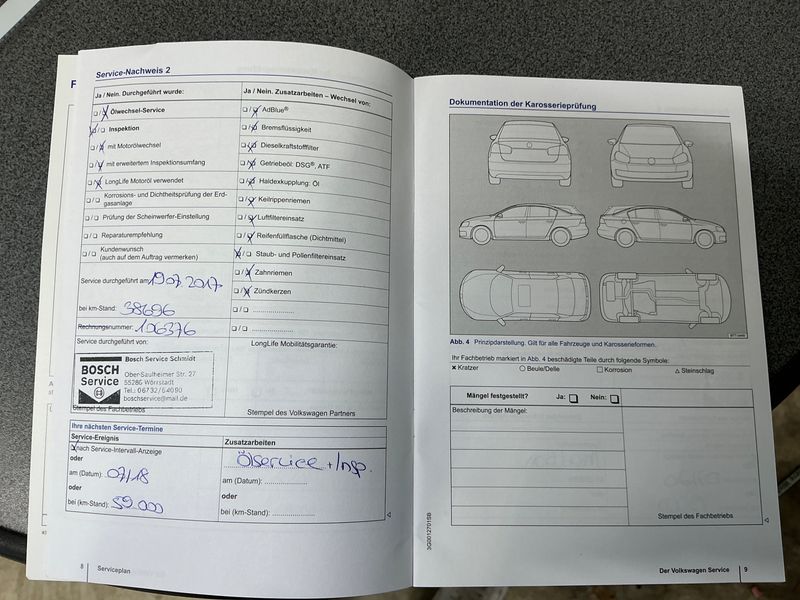 Service-Nachweis 2
Ja / Nein. Durchgeführt wurde:
Ja / Nein. Zusatzarbeiten – Wechsel von:
Ölwechsel-Service
AdBlue®
Inspektion
Bremsflüssigkeit
mit Motorölwechsel
Dieselkraftstofffilter
mit erweitertem Inspektionsumfang
Getriebeöl: DSG®, ATF
LongLife Motoröl verwendet
Haldexkupplung: Öl
Korrosions- und Dichtheitsprüfung der Erd-
gasanlage
Keilrippenriemen
Prüfung der Scheinwerfer-Einstellung
Luftfiltereinsatz
Reparaturempfehlung
Reifenfüllflasche (Dichtmittel)
Kundenwunsch
(auch auf dem Auftrag vermerken)
Staub- und Pollenfiltereinsatz
Zahnriemen
Service durchgeführt am 19.07.2017
Zündkerzen
bei km-Stand: 38696
Rechnungsnummer: 106376
Service durchgeführt von:
LongLife Mobilitätsgarantie:
BOSCH
Service
Bosch Service Schmidt
Ober-Saulheimer Str. 27
55286 Wörrstadt
Tel.: 06732/64090
boschservice@mail.de
Stempel des Fachbetriebs
Stempel des Volkswagen Partners
Ihre nächsten Service-Termine
Service-Ereignis
Zusatzarbeiten
nach Service-Intervall-Anzeige
Ölservice + Insp.
oder
am (Datum): 07/18
am (Datum):
oder
oder
bei (km-Stand): 59.000
bei (km-Stand):
8 Serviceplan
Dokumentation der Karosserieprüfung
Abb. 4 Prinzipdarstellung. Gilt für alle Fahrzeuge und Karosserieformen.
Ihr Fachbetrieb markiert in Abb. 4 beschädigte Teile durch folgende Symbole:
Kratzer
Beule/Delle
Korrosion
Steinschlag
Mängel festgestellt? Ja: Nein:
Beschreibung der Mängel:
Stempel des Fachbetriebs
3G0012701SB
Der Volkswagen Service 9